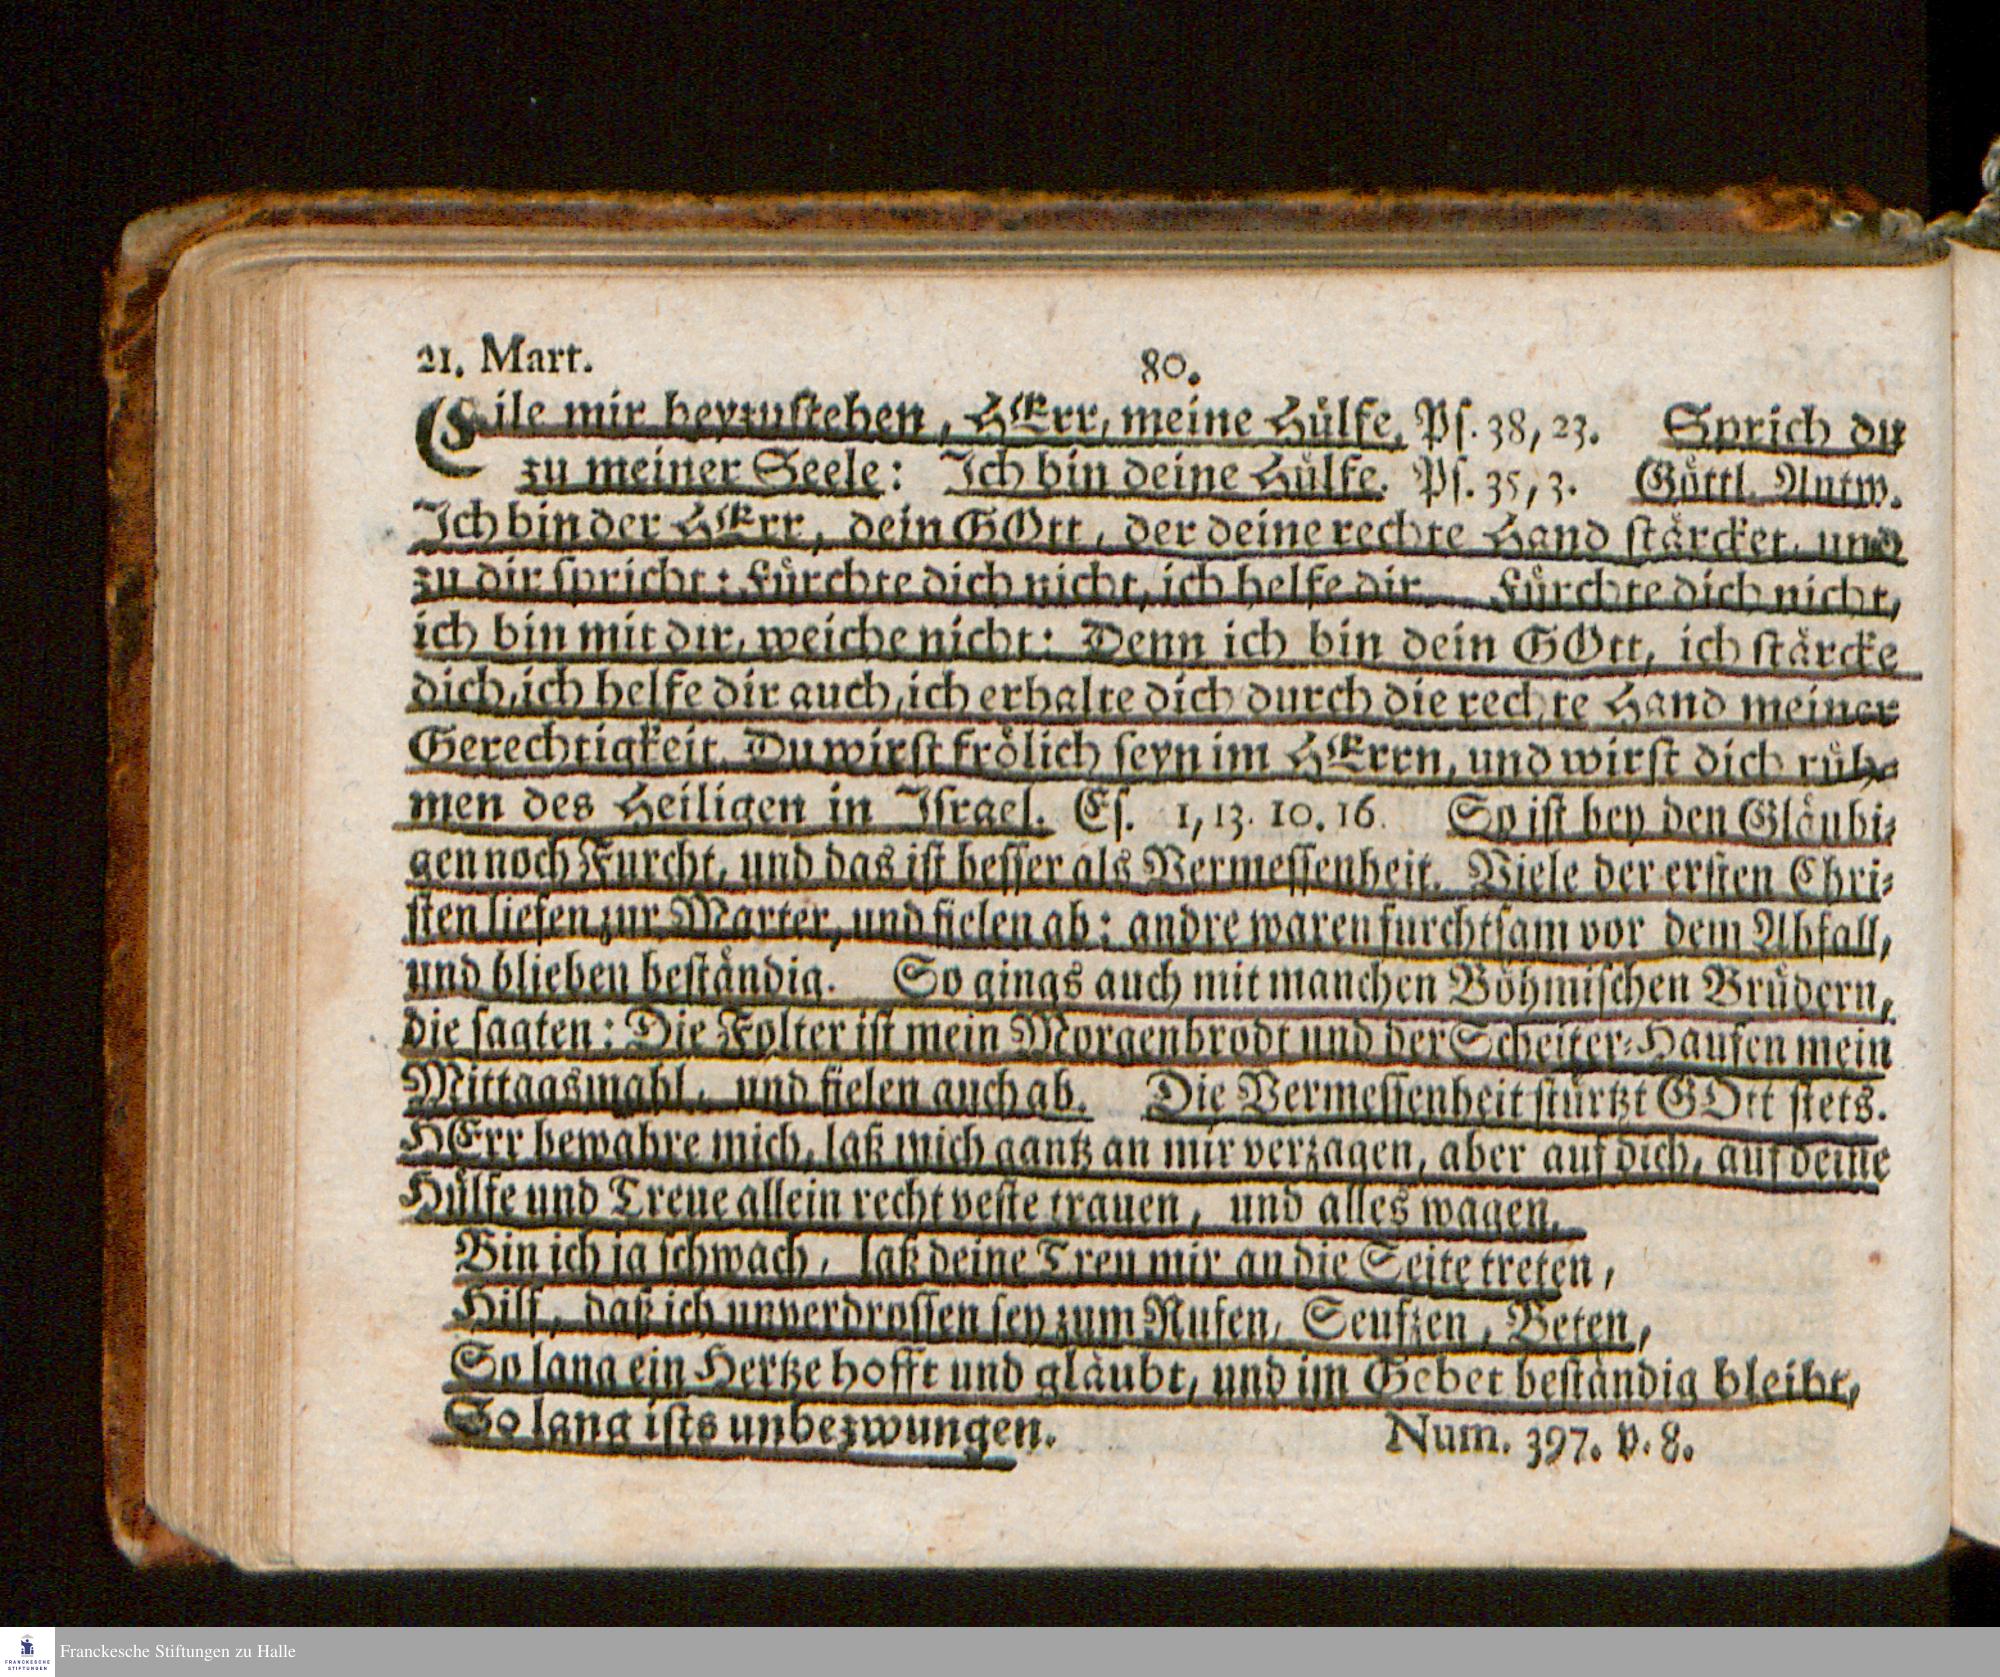 21. Mart. 80.
Eile mir beyzustehen, HErr, meine Hülfe, Ps. 38, 23. Sprich du
zu meiner Seele: Ich bin deine Hülfe. Ps. 35, 3. Göttl. Antw.
Ich bin der HErr, dein GOtt, der deine rechte Hand stärcket, und
zu dir spricht: Fürchte dich nicht, ich helfe dir. Fürchte dich nicht,
ich bin mit dir, weiche nicht: Denn ich bin dein GOtt, ich stärcke
dich, ich helfe dir auch, ich erhalte dich durch die rechte Hand meiner
Gerechtigkeit. Du wirst frölich seyn im HErrn, und wirst dich rüh-
men des Heiligen in Israel. Es. 1, 13. 10. 16. So ist bey den Gläubi-
gen noch Furcht, und das ist besser als Vermessenheit. Viele der ersten Chri-
sten liefen zur Marter, und fielen ab: andre waren furchtsam vor dem Abfall,
und blieben beständig. So gings auch mit manchen Böhmischen Brüdern,
die sagten: Die Folter ist mein Morgenbrodt und der Scheiter-Haufen mein
Mittagsmahl, und fielen auch ab. Die Vermessenheit stürtzt GOtt stets.
HErr bewahre mich, laß mich gantz an mir verzagen, aber auf dich, auf deine
Hülfe und Treue allein recht veste trauen, und alles wagen.
Bin ich ja schwach, laß deine Treu mir an die Seite treten,
Hilf, daß ich unverdrossen sey zum Rufen, Seufzen, Beten,
So lang ein Hertze hofft und gläubt, und im Gebet beständig bleibt,
So lang ists unbezwungen. Num. 397. v. 8.
FRANCKESCHE
STIFTUNGEN
Franckesche Stiftungen zu Halle